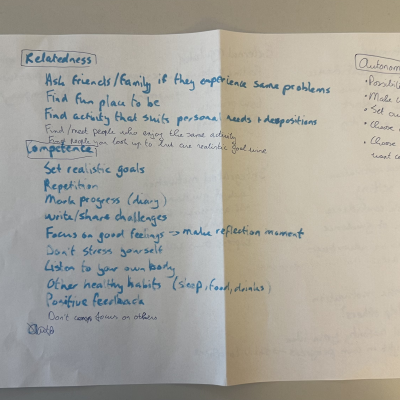 Relatedness
Ask friends/family if they experience same problems
Find fun place to be
Find activity that suits personal needs + dispositions
Find/meet people who enjoy the same activity
Find people you look up to but are realistic
Competence
Set realistic goals
Repetition
Mark progress (diary)
Write/share challenges
Focus on good feelings → make reflection moment
Don't stress yourself
Listen to your own body
Other healthy habits (sleep, food, drinks)
Positive feedback
Don't focus on others
Autonom
• Possibili
• Make
• Set
• Choose
• Choose
want